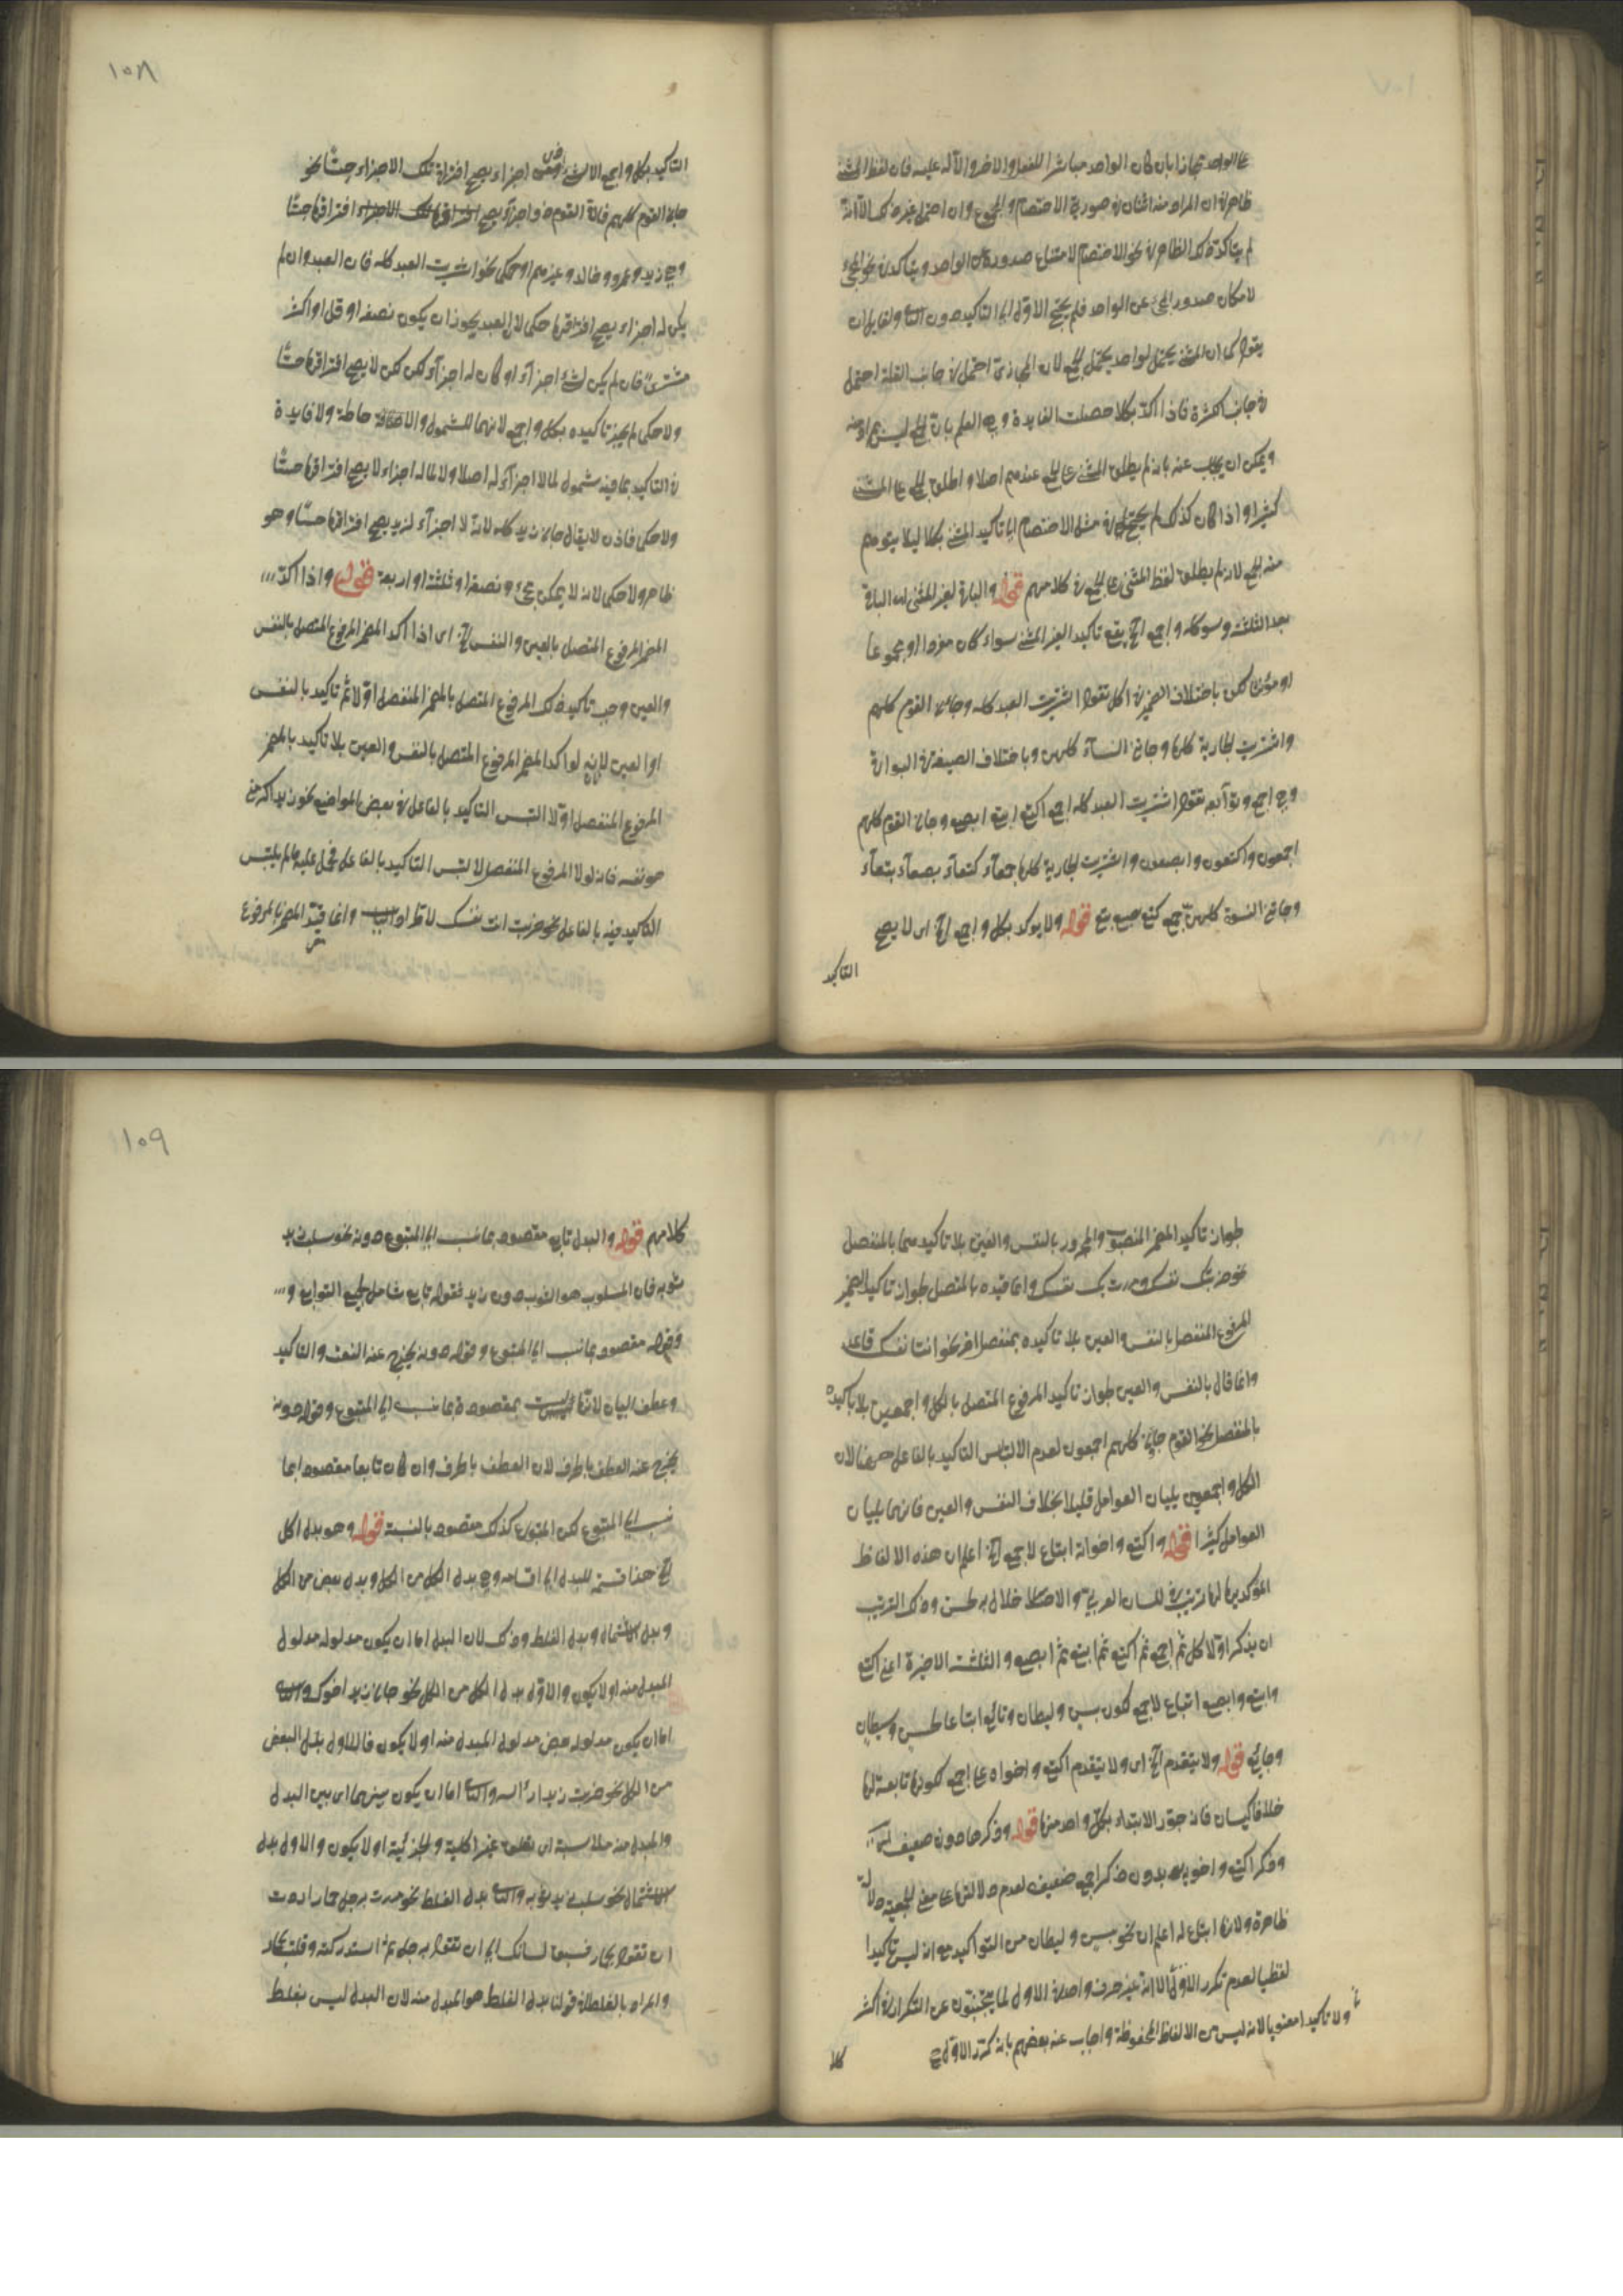 على الواحد مجازا بان كان الواحد مباشرا للفعل والاخر والآلة عليه فان لفظ المثنى
ظاهر في ان المراد منه اثنان في صورتي الاختصام والمجئ وان احتمل غير ذلك الا انه
لم يتأكد ذلك الظاهر في نحو الاختصام لامتناع صدوره عن الواحد ويتأكد في نحو المجئ
لامكان صدور المجئ عن الواحد فلم يحتج الاول الى التأكيد دون الثاني ولقائل ان
يقول كما ان المثنى يحتمل لواحد يحتمل للجمع لان المجاز في احتمل في جانب القلة احتمل
في جانب الكثرة فاذا اكد بكلا حصلت الفايدة وهي العلم بان الجمع ليس بمراد منه
ويمكن ان يجاب عنه بانه لم يطلق المثنى على الجمع عندهم اصلا واطلق الجمع على المثنى
كثيرا واذا كان كذلك لم يحتج في مثل الاختصام الى تاكيد المثنى بكلا ليلا يتوهم
منه الجمع لانه لم يطلق لفظ المثنى على الجمع في كلامهم قوله والباقي لغير المثنى اى الباقي
بعد الثلثة وهو كله واجمع الخ يقع تاكيد الغير المثنى سواء كان مفردا او مجموعا
او مؤنثا لكن باختلاف الضمير في اكل تقول اشتريت العبد كله وجاءني القوم كلهم
واشتريت الجارية كلها وجاءني النساء كلهن وباختلاف الصيغة في البواقي
وهي اجمع وتوابعه تقول اشتريت العبد كله اجمع اكتع ابتع ابصع وجاءني القوم كلهم
اجمعون واكتعون وابصعون واشتريت الجارية كلها جمعآء كتعآء بصعآء بتعآء
وجاءني النسوة كلهن جمع كتع بصع بتع قوله ولا يوكد بكل واجمع الخ اى لا يصح
التاكيد
١٥٨
التاكيد بكل واجمع الا الشئ ذو اجزاء يصح افتراق تلك الاجزاء حسًّا نحو
جاءني القوم كلهم فان القوم ذو اجزآء يصح افتراقها حسًّا
وهي زيد وعمرو وخالد وغيرهم او حكمى نحو اشتريت العبد كله فان العبد وان لم
يكن له اجزاء يصح افتراقها حكمى لان العبد يجوز ان يكون نصفه او اقل او اكثر
مشترى فان لم يكن لشئ اجزآء او كان له اجزآء لكن لا يصح افتراقها حسًّا
ولا حكمى لم يجز تاكيده بكل واجمع لانهما للشمول والاحاطة ولا فايدة
في التاكيد بما فيه شمول لما لا اجزآء له اصلا ولا لما له اجزاء لا يصح افتراقها حسًّا
ولا حكمى فاذن لا يقال جاءني زيد كله لانه لا اجزآء لزيد يصح افتراقها حسًّا وهو
ظاهر ولا حكمى لانه لا يمكن مجئ نصفه او ثلثه او اربعة قوله واذا اكد
المضمر المرفوع المتصل بالعين والنفس الخ اى اذا اكد المضمر المرفوع المتصل بالنفس
والعين وجب تاكيد ذلك المرفوع المتصل بالمضمر المنفصل اولا ثم تاكيد بالنفس
او العين لانه لو اكد المضمر المرفوع المتصل بالنفس والعين بلا تاكيد بالمضمر
المرفوع المنفصل اولا التبس التاكيد بالفاعل في بعض المواضع نحو زيد اكرمنى
هو نفسه فانه لولا المرفوع المنفصل لالتبس التاكيد بالفاعل فحمل عليه ما لم يلتبس
التاكيد فيه بالفاعل نحو ضربت انت نفسك وانما قيد المضمر بالمرفوع
لجواز تاكيد المضمر المنصوب والمجرور بالنفس والعين بلا تاكيد منهما بالمنفصل
نحو ضربتك نفسك ومررت بك نفسك وانما قيده بالمتصل لجواز تاكيد الضمير
المرفوع المنفصل بالنفس والعين بلا تاكيده بمنفصل اخر نحو انت نفسك قاعد
وانما قال بالنفس والعين لجواز تاكيد المرفوع المتصل بالكل واجمعين بلا تأكيده
بالمنفصل نحو القوم جاءني كلهم اجمعون لعدم الالتباس التاكيد بالفاعل ههنا لان
الكل واجمعين يليان العوامل قليلا بخلاف النفس والعين فانهما يليان
العوامل كثيرا قوله واكتع واخواته اتباع لاجمع الخ اعلم ان هذه الالفاظ
المؤكد بها لها ترتيب في لسان العربي والاخلال به لحن وذلك الترتيب
ان يذكر اولا كل ثم اجمع ثم اكتع ثم ابتع ثم ابصع والثلثة الاخيرة اعنى اكتع
وابتع وابصع اتباع لاجمع ككون بسن وليطان ونائع اتباعا لحسن وشيطان
وجائع قوله ولا يتقدم الخ اى ولا يتقدم اكتع واخواه على اجمع لكونها تابعة لها
خلافا لكيسان فانه جوز الابتداء بكل واحد منها قوله وذكرها دونه ضعيف
وذكر اكتع واخويه بدون ذكر اجمع ضعيف لعدم دلالتها على معنى الجمعية دلالة
ظاهرة ولانها اتباع له اعلم ان نحو بسن وليطان من التواكيد مع انه ليس تاكيدا
لفظيا لعدم تكرر الاول الا انه غير حرف واحد في الاول لما يجتنبون عن التكرار في اكثر
ولا تاكيدا معنويا لانه ليس من الالفاظ المحفوظة واجاب عنه بعضهم بانه كرر الاول في
كلا
١٥٩
كلامهم قوله والبدل تابع مقصود بما نسب الى المتبوع دونه نحو سلب زيد
ثوبه فان المسلوب هو الثوب دون زيد فقوله تابع شامل لجميع التوابع و
وقوله مقصود بما نسب الى المتبوع وقوله دونه يخرج عنه النعت والتاكيد
وعطف البيان لانها ليست بمقصودة بما نسب الى المتبوع وقوله دونه
يخرج عنه العطف بالحرف لان العطف بالحرف وان كان تابعا مقصودا بما
نسب الى المتبوع لكن المتبوع كذلك مقصود بالنسبة قوله وهو بدل الكل
الخ هذا قسمة للبدل الى اقسامه وهي بدل الكل من الكل وبدل بعض من الكل
وبدل الاشتمال وبدل الغلط وذلك لان البدل اما ان يكون مدلوله مدلول
المبدل منه او لا يكون والاول بدل الكل من الكل نحو جاءني زيد اخوك والثاني
اما ان يكون مدلوله بعض مدلول المبدل منه او لا يكون فالاول بدل البعض
من الكل نحو ضربت زيدا رأسه والثاني اما ان يكون بينهما اى بين البدل
والمبدل منه ملابسة اى بتعلق غير الكلية والجزئية او لا يكون والاول بدل
الاشتمال نحو سلب زيد ثوبه والثاني بدل الغلط نحو مررت برجل حمار اردت
ان تقول بحمار فسبق لسانك الى ان تقول برجل ثم استدركته وقلت بحمار
والمراد بالغلط في قولنا بدل الغلط هو المبدل منه لان البدل ليس بغلط